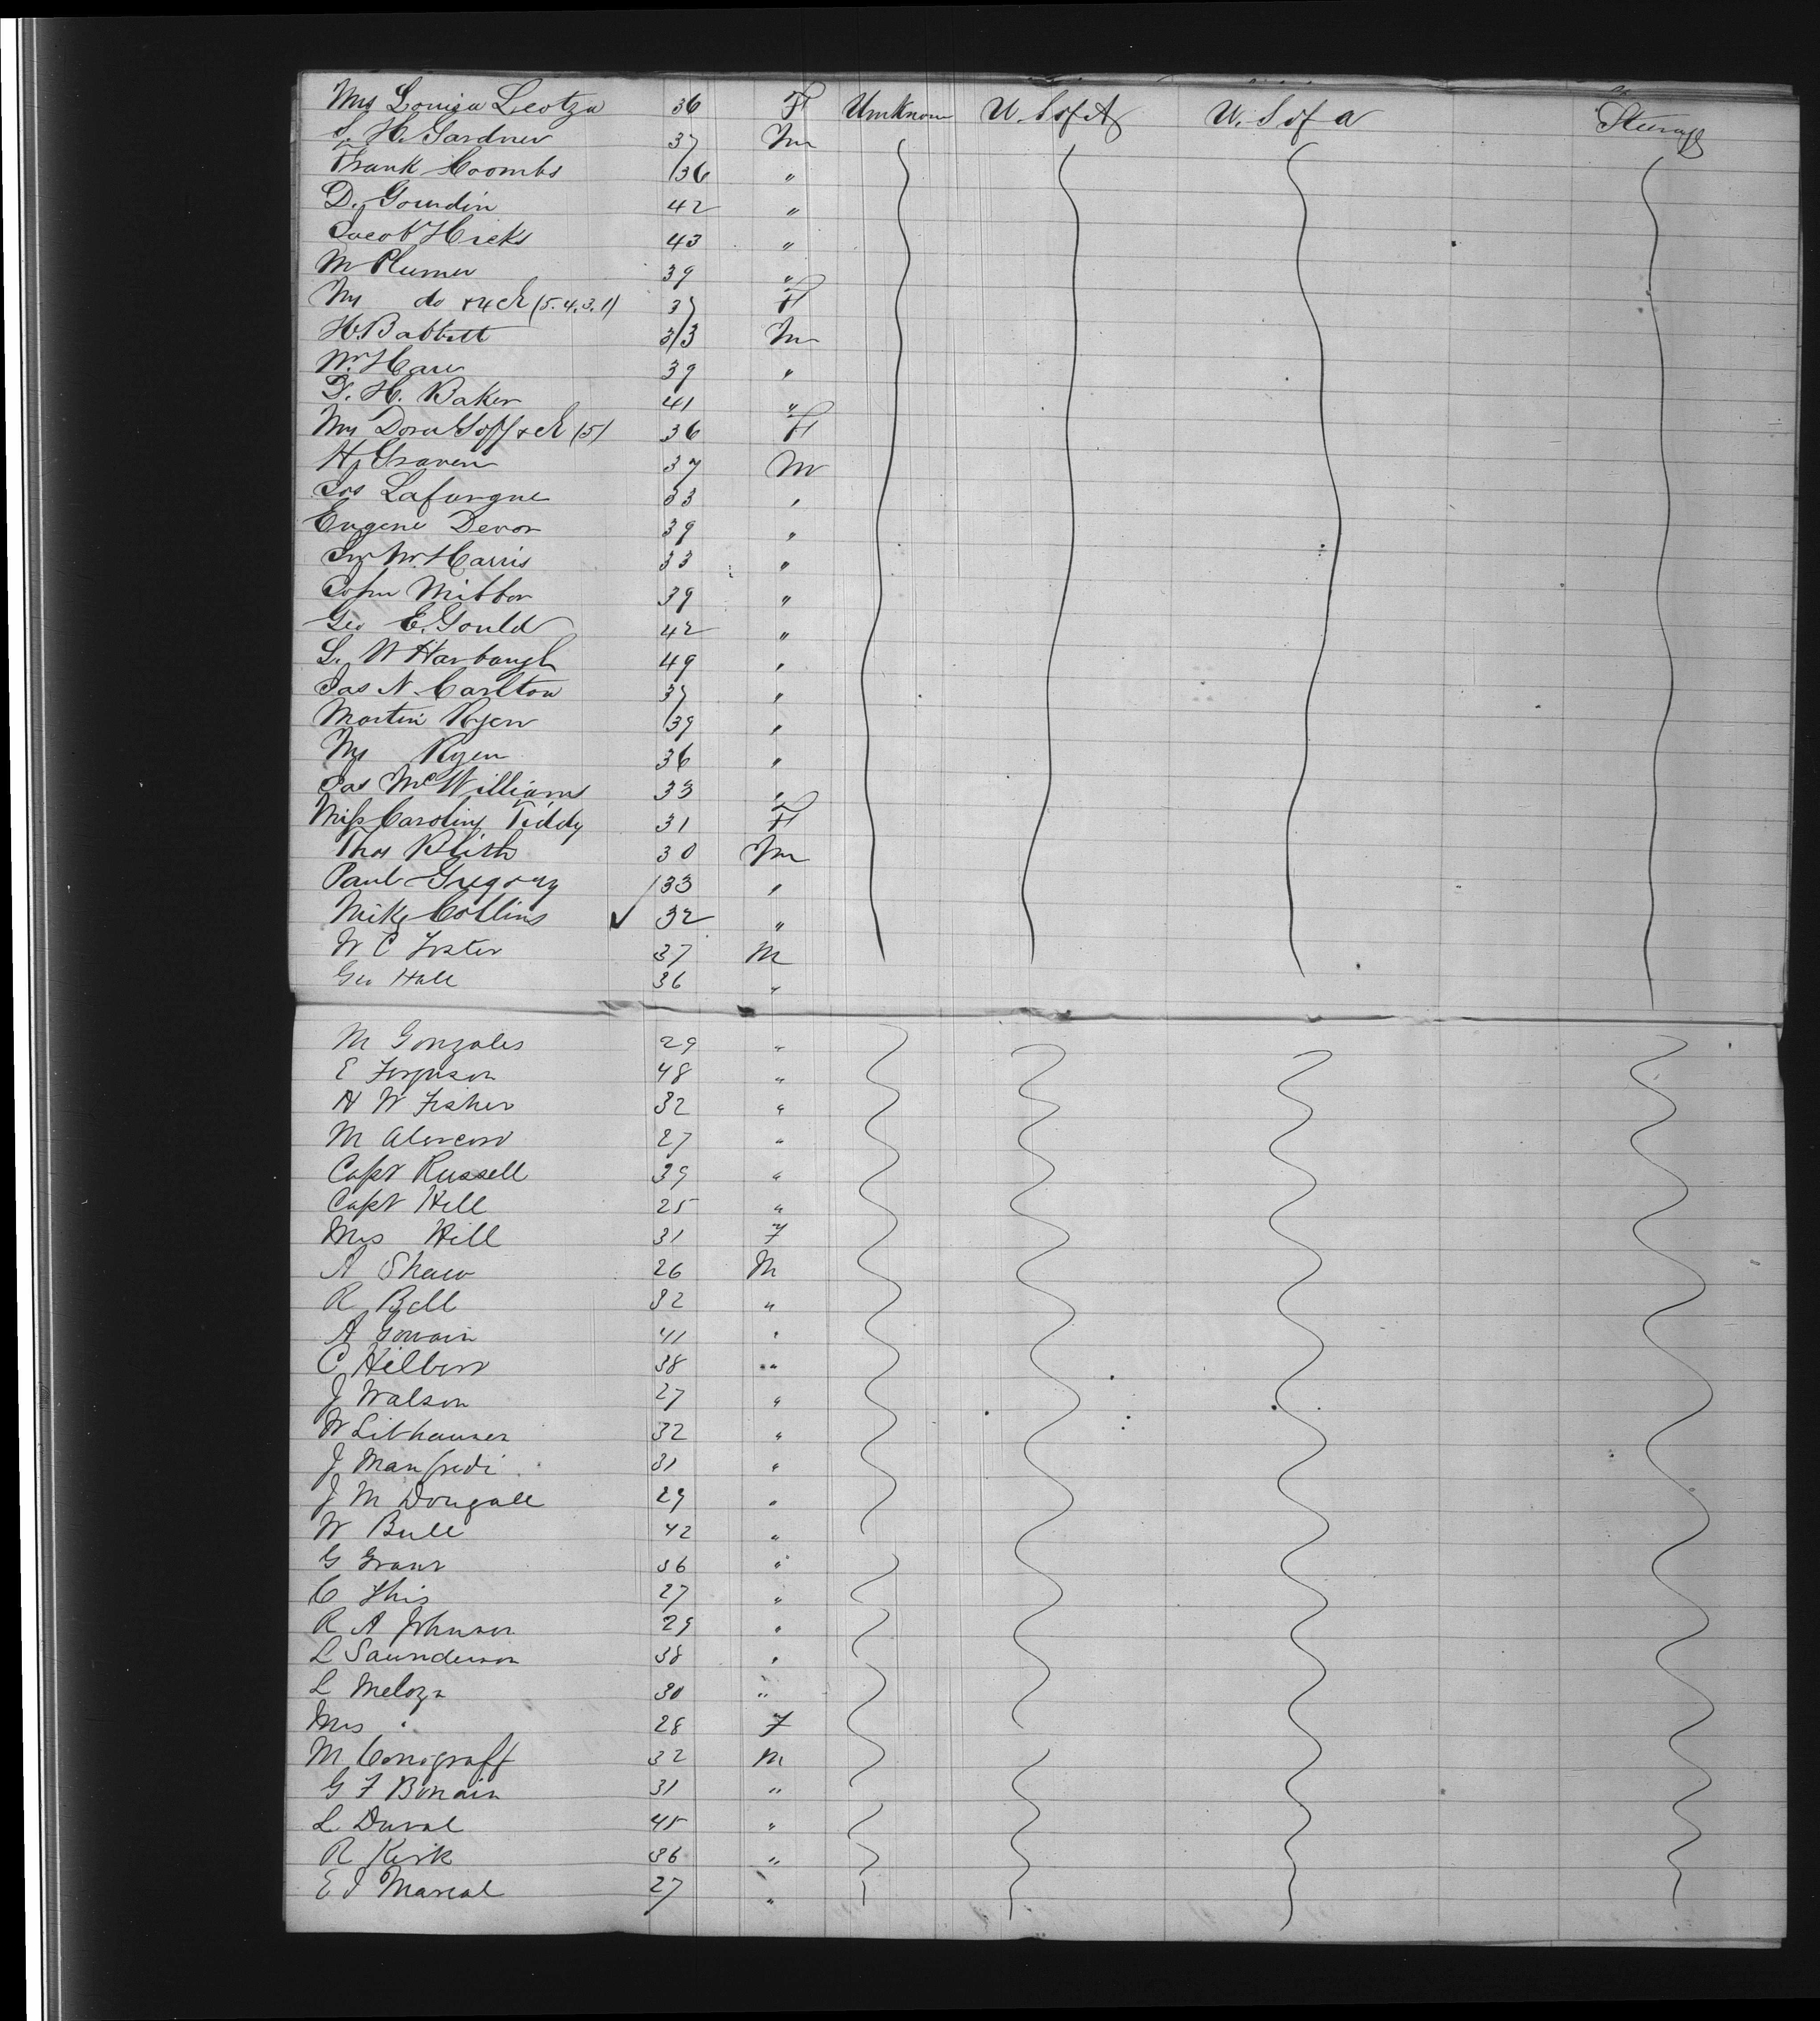 Mrs Louisa Leotza 36 F Unknown U. S of A U. S of A Steerage
S. H. Gardner 37 M
Frank Coombs 36 "
D. Gourdin 42 "
Jacob Hicks 43 "
M Plumer 39 "
Mrs do & 4 ch (5. 4. 3. 1) 37 F
H. Babbitt 33 M
Wm Hare 39 "
F. H. Baker 41 "
Mrs Dora Goff & ch (5) 36 F
H. Graven 37 M
Jos Lafurgue 33 "
Eugene Devon 39 "
Wm Harris 33 "
John Mibbon 39 "
Geo E. Gould 42 "
L. W Harbaugh 49 "
Jas N. Carlton 37 "
Martin Ryen 39 "
Mrs Ryen 36 "
Jas McWilliams 33 "
Miss Caroling Tiddy 31 F
Thos Blish 30 M
Paul Gregory 33 "
Mike Collins ✓ 32 "
W C Foster 37 M
Geo Hall 36 "
M Gonzales 29 "
E Ferguson 48 "
H W Fisher 32 "
M 27 "
Capt Russell 39 "
Capt Hill 25 "
Mrs Hill 31 F
A Shaw 26 M
R Bell 32 "
A Gowain 41 "
C Hilborn 38 "
J Walson 27 "
W Lithauser 32 "
J Manfredi 31 "
J M Dougall 29 "
W Bull 42 "
G Grant 36 "
C This 27 "
R A Johnson 29 "
L Saunderson 38 "
L Meloza 30 "
Mrs " 28 F
M Conograff 32 M
G F Bonain 31 "
L Duval 45 "
R Kirk 36 "
E J Marcal 27 "